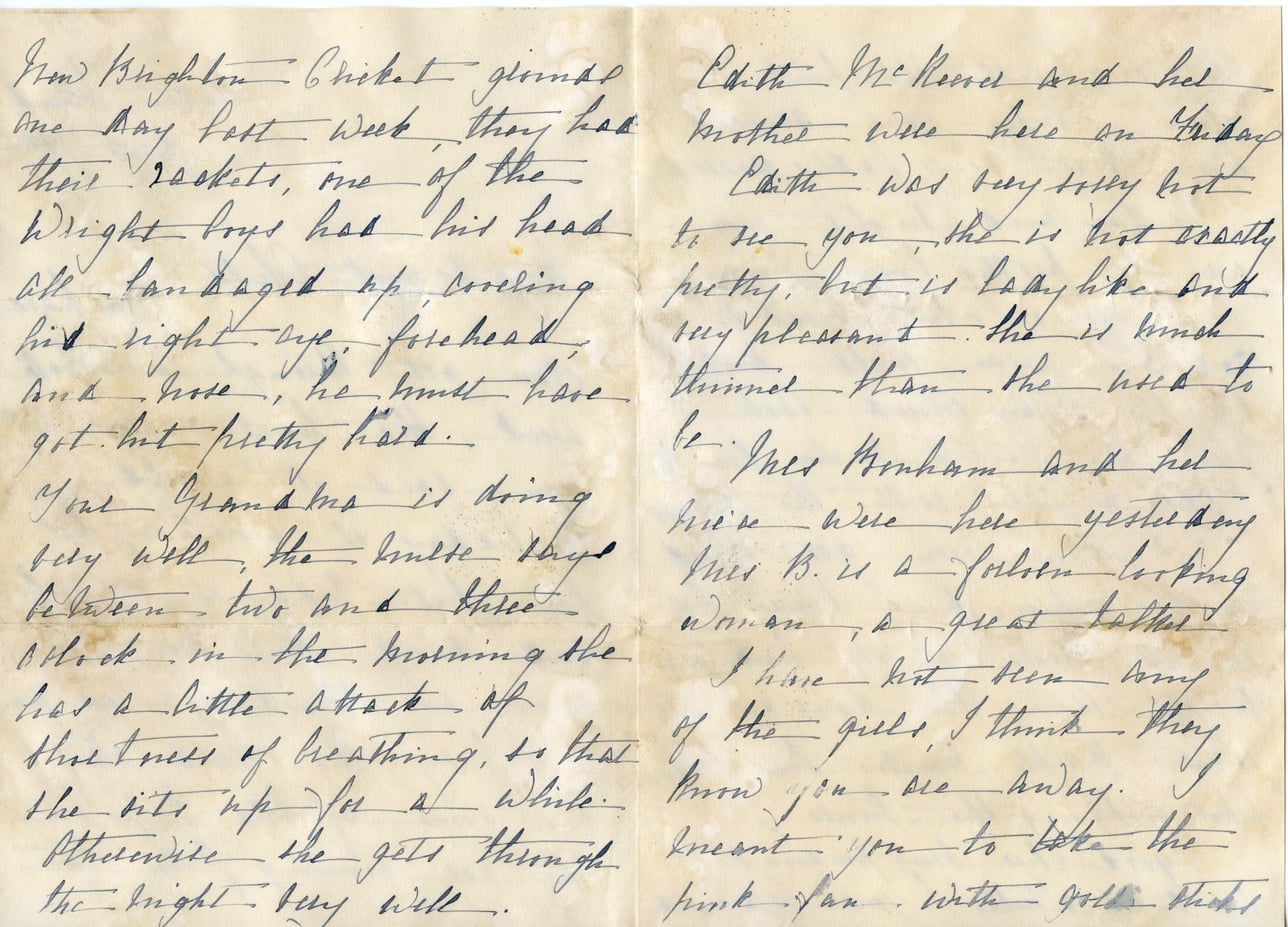 New Brighton Cricket grounds
one day last week, they had
their rackets, one of the
Wright boys had his head
all bandaged up, covering
his right eye, forehead,
and nose, he must have
got hit pretty hard.
Your Grandma is doing
very well, the nurse says
between two and three
oclock in the morning she
has a little attack of
shortness of breathing, so that
she sits up for a while.
Otherwise she gets through
the night very well.
Edith McKeever and her
mother were here on Friday
Edith was very sorry not
to see you, she is not exactly
pretty, but is ladylike and
very pleasant. She is much
thinner than she used to
be.
Mrs Bonham and her
niece were here yesterday
Mrs B. is a forlorn looking
woman, a great talker
I have not seen any
of the girls, I think they
know you are away. I
meant you to take the
pink fan with gold sticks